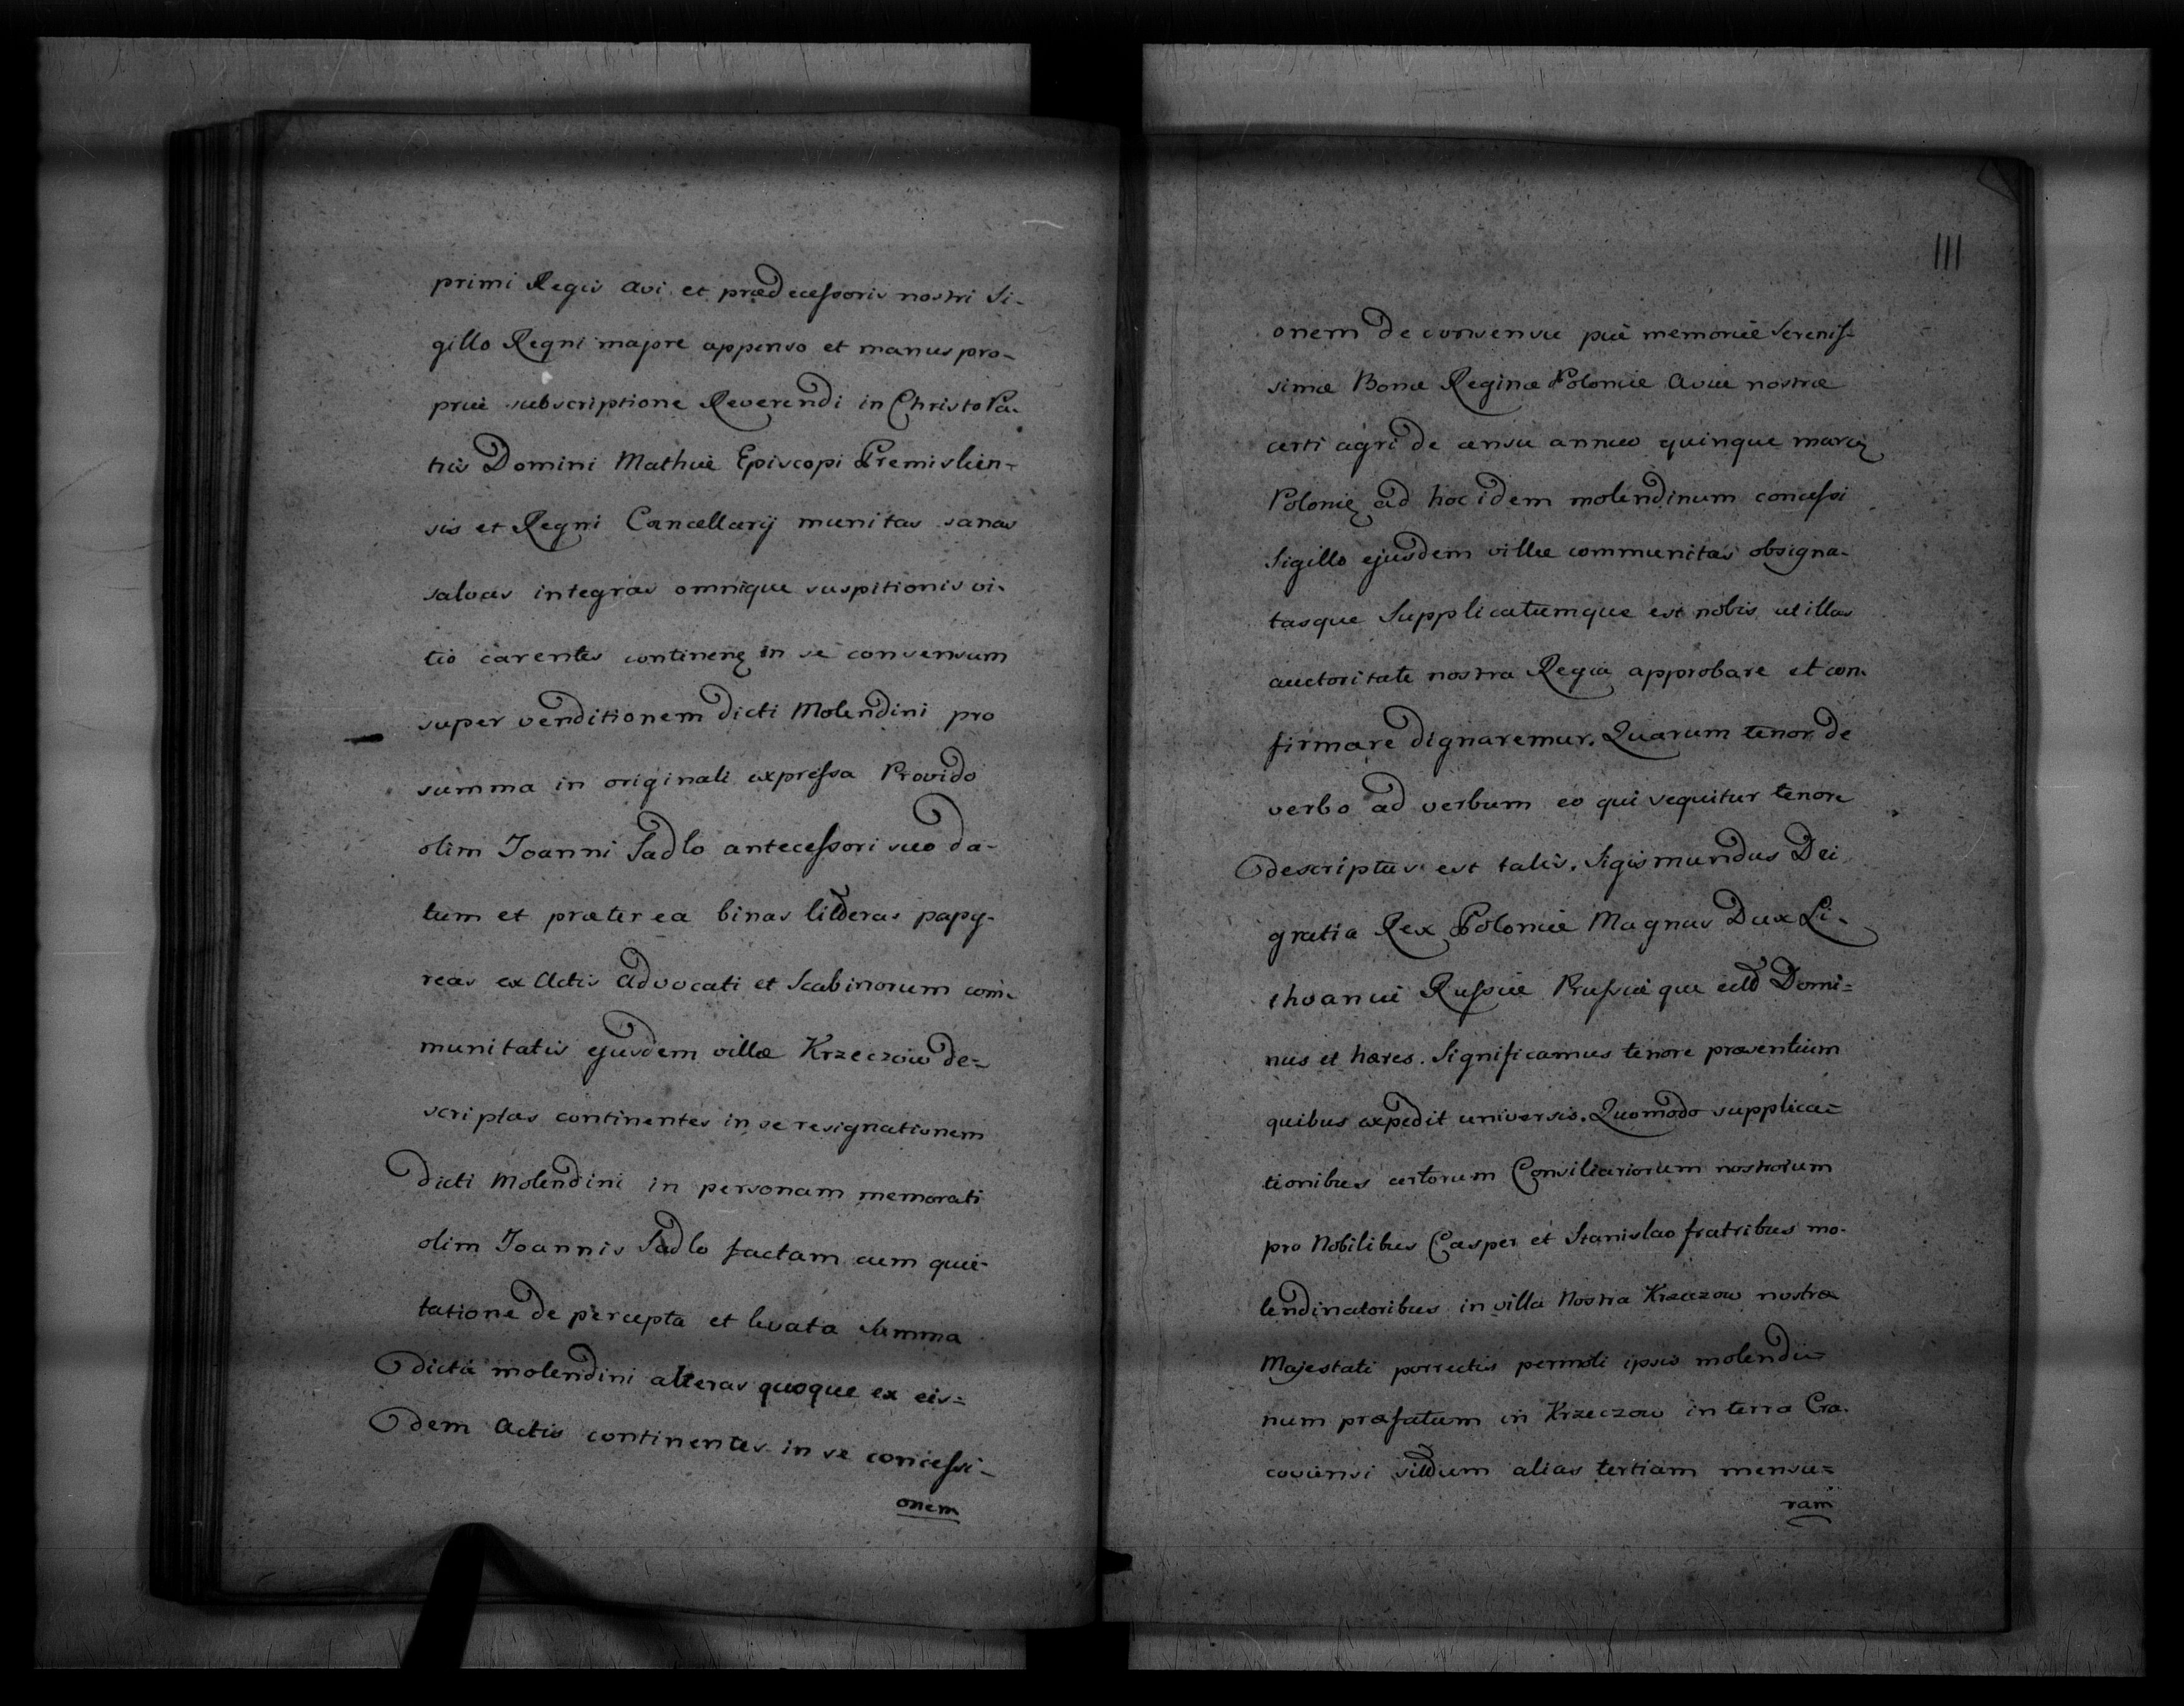 primi Regis avi et prædecessoris nostri Si-
gillo Regni majore appenso et manus pro-
priæ subscriptione Reverendi in Christo Pa-
tris Domini Mathiæ Episcopi Premislien-
sis et Regni Cancellarij munitas sanas
salvas integras omnique suspitionis vi-
tio carentes continenę in se consensum
super venditionem dicti Molendini pro
summa in originali expressa Provido
olim Joanni Sadlo antecessori suo da-
tum et præterea binas litteras papy-
reas ex Actis advocati et Scabinorum com-
munitatis ejusdem villæ Krzeczow de=
scriptas continentes in se resignationem
dicti Molendini in personam memorati
olim Joannis Sadlo factam cum quie-
tatione de percepta et levata Summa
dicta molendini alteras quoque ex eis=
dem Actis continentes in se concessi-
onem
111
onem de consensu piæ memoriæ Serenis-
simæ Bonæ Reginæ Poloniæ aviæ nostræ
certi agri de censu annuo quinque marcę
Polonię ad hoc idem molendinum concessi
Sigillo ejusdem villæ communitas obsigna-
tasque Supplicatumque est nobis ut illas
auctoritate nostra Regia approbare et con-
firmare dignaremur. Quarum tenor de
verbo ad verbum eo qui sequitur tenore
descriptus est talis. Sigismundus Dei
gratia Rex Poloniæ Magnus Dux Li-
thvaniæ Russiæ Prussiæque etc Domi=
nus et hæres. Significamus tenore præsentium
quibus expedit universis. Quomodo supplica=
tionibus certorum Consiliariorum nostrorum
pro Nobilibus Casper et Stanislao fratribus mo-
lendinatoribus in villa Nostra Krzeczow nostræ
Majestati porrectis permoti ipsis molendi=
num præfatum in Krzeczow in terra Cra-
coviensi situm alias tertiam mensu=
ram